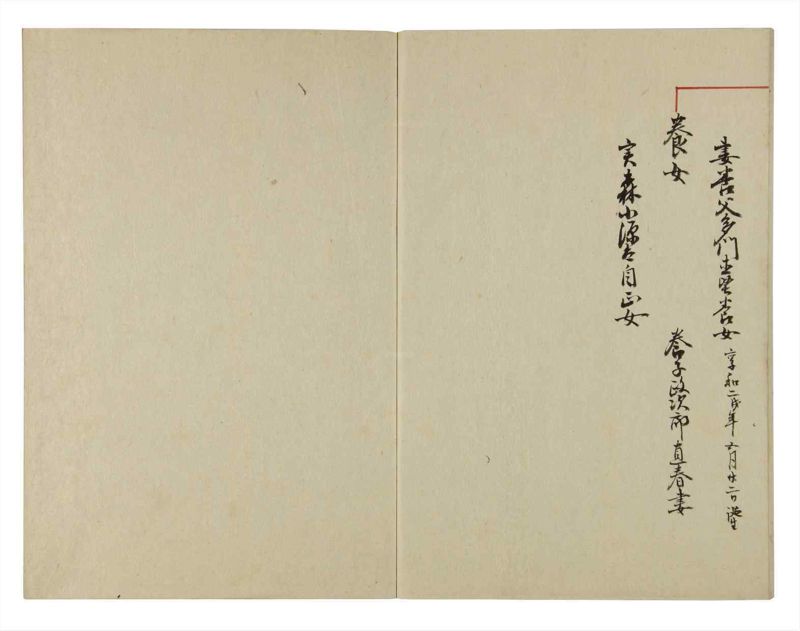 妻養父多門直堅養女 享和二戌年六月廿二日
養女 養子政次郎直春妻
実森小源太自正女